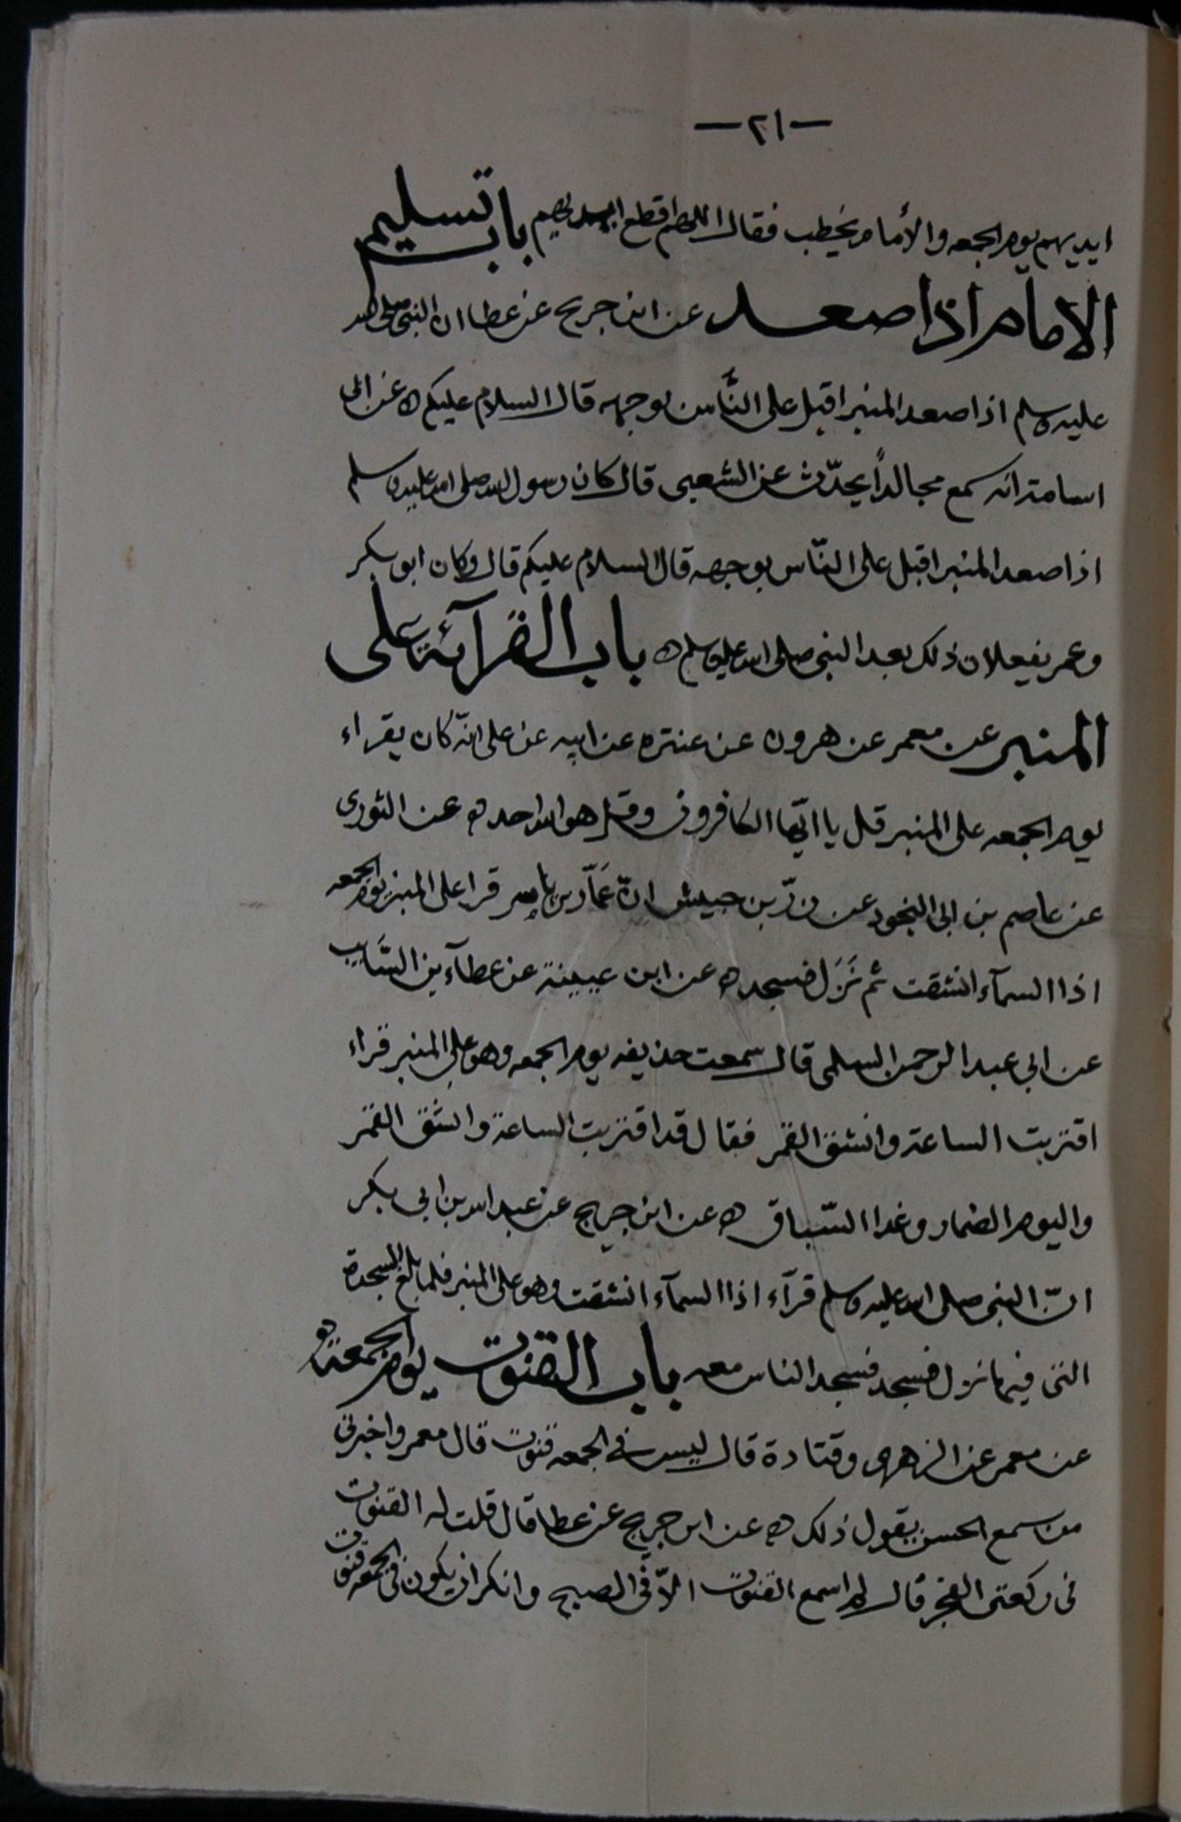 —٢١—
ايديهم يوم الجمعه والأمام يخطب فقال اللهم اقطع ايديهم باب تسليم
الامام اذا صعد عن ابن جريج عن عطا ان النبى صلى الله
عليه وسلم اذا صعد المنبر اقبل على النَّاس بوجهه قال السلام عليكم ه عن ابى
اسامة انه سمع مجالداً يحدّث عن الشعبى قال كان رسول الله صلى الله عليه وسلم
اذا صعد المنبر اقبل على النّاس بوجهه قال السلام عليكم قال وكان ابو بكر
وعمر يفعلان ذلك بعد النبى صلى الله عليه وسلم ه باب القرآئة على
المنبر عن معمر عن هرون عن عنتره عن ابيه عن على انّه كان يقراء
يوم الجمعه على المنبر قل يا ايّها الكافرون وقل هو الله احد ه عن الثورى
عن عاصم بن ابى النجود عن زرّ بن حبيش انّ عمّار بن ياسر قرا على المنبر يوم الجمعه
اذا السمآء انشقت ثم نَزَل فسجد ه عن ابن عيينة عن عطآء بن السَّايب
عن ابي عبد الرحمن السلمى قال سمعت حذيفه يوم الجمعه وهو على المنبر قراء
اقتربت الساعة وانشق القمر فقال قد اقتربت الساعة وانشق القمر
واليوم الضمار وغدا السّباق ه عن ابن جريج عن عبد الله بن ابى بكر
انّ النبى صلى الله عليه وسلم قرآء اذا السمآء انشقت وهو على المنبر فلما بلغ السجدة
التى فيها نزل فسجد فسجد الناس معه باب القنوت يوم الجمعة ه
عن معمر عن الزهرى وقتادة قال ليس فى الجمعه قنوت قال معمر واخبرنى
من سمع الحسن يقول ذلك ه عن ابن جريج عن عطا قال قلت له القنوت
فى ركعتى الفجر قال لم اسمع القنوت الّا فى الصبح وانكر ان يكون فى الجمعه قنوت